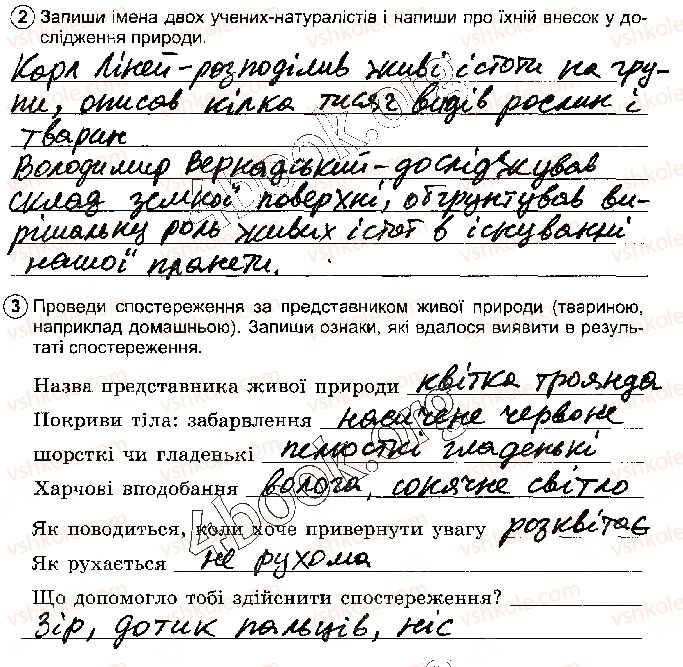 2 Запиши імена двох учених-натуралістів і напиши про їхній внесок у до-
слідження природи.
Карл Ліней – розподілив живі істоти на гру-
пи, описав кілка тисяг видів рослин і
тварин
Володимир Вернадський – досліджував
склад земної поверхні, обгрунтував ви-
рішальну роль живих істот в існуванні
нашої планети.
3 Проведи спостереження за представником живої природи (твариною,
наприклад домашньою). Запиши ознаки, які вдалося виявити в резуль-
таті спостереження.
Назва представника живої природи квітка троянда
Покриви тіла: забарвлення насичене червоне
шорсткі чи гладенькі пелюстки гладенькі
Харчові вподобання волога, сонячне світло
Як поводиться, коли хоче привернути увагу розквітає
Як рухається не рухома
Що допомогло тобі здійснити спостереження?
Зір, дотик пальців, ніс
4book.org
4book.org
vshkole.com